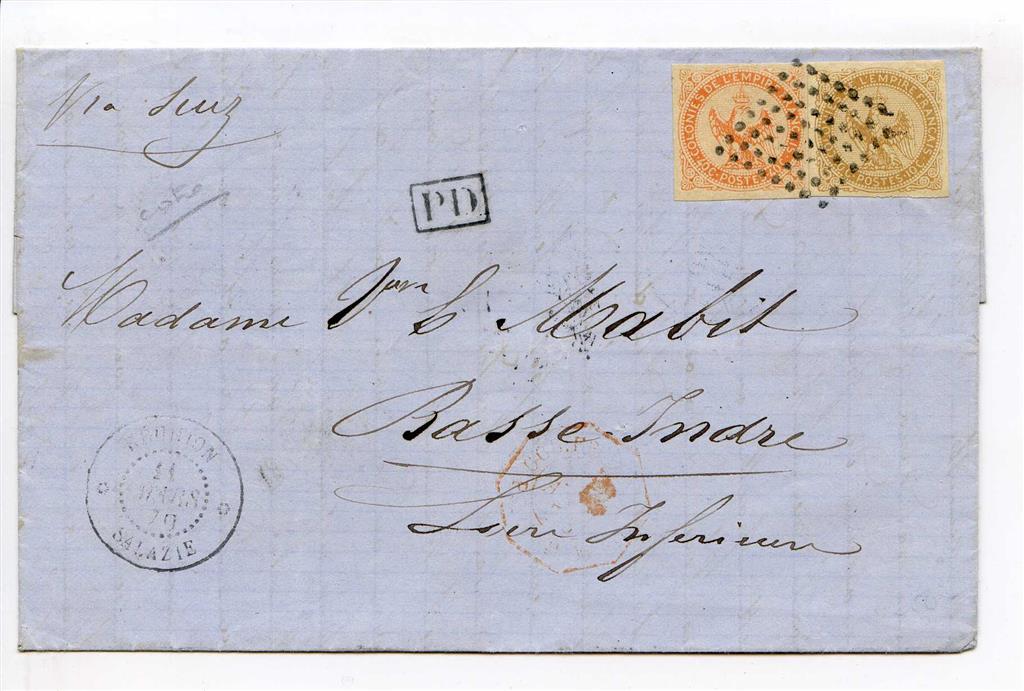 Via Suez
COLONIES DE L'EMPIRE
40 C. POSTES
L'EMPIRE FRANÇAIS
POSTES 10 C
PD
Madame Vve C Mabit
Basse-Indre
Loire Inferieure
REUNION
11
MARS
70
SALAZIE